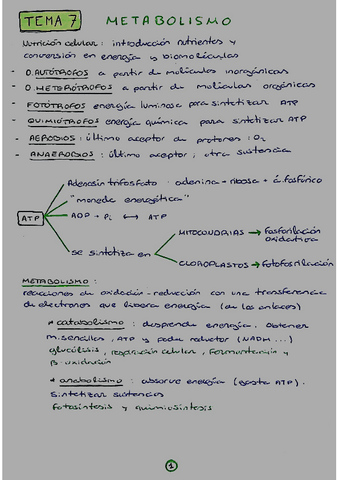 TEMA 7 METABOLISMO
Nutrición celular: introducción nutrientes y
conversión en energía y biomoléculas
- O. AUTÓTROFOS a partir de moléculas inorgánicas
- O. HETERÓTROFOS a partir de moléculas orgánicas
- FOTÓTROFOS energía luminosa para sintetizar ATP
- QUIMIÓTROFOS energía química para sintetizar ATP
- AEROBIOS: último aceptor de protones: O₂
- ANAEROBIOS: último aceptor, otra sustancia
Adenosín trifosfato: adenina + ribosa + á. fosfórico
"moneda energética"
ATP ADP + Pi ↔ ATP
se sintetiza en
MITOCONDRIAS → Fosforilación
oxidativa
CLOROPLASTOS → Fotofosforilación
METABOLISMO:
reacciones de oxidación-reducción con una transferencia
de electrones que libera energía (de los enlaces)
* catabolismo: desprende energía. Obtener
m. sencillas, ATP y poder reductor (NADH...)
glucólisis, respiración celular, fermentación y
β-oxidación
* anabolismo: absorve energía (gasta ATP).
Sintetizar sustancias
Fotosíntesis y quimiosíntesis
1